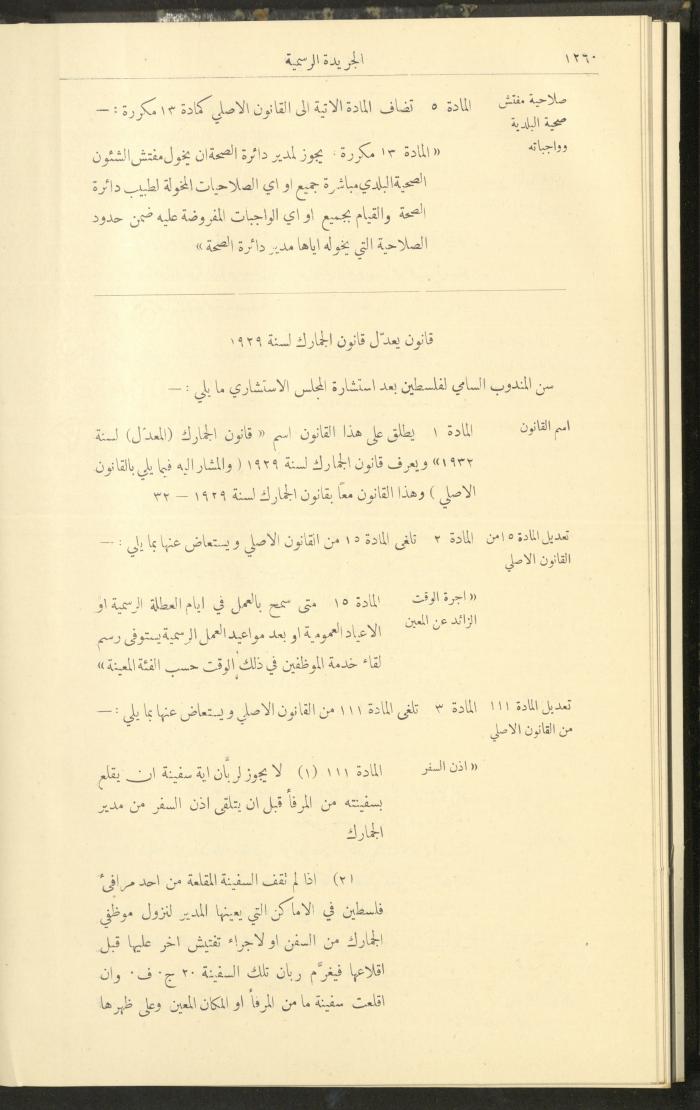 ١٢٦٠
الجريدة الرسمية
صلاحية مفتش
صحية البلدية
وواجباته
المادة ٥ تضاف المادة الاتية الى القانون الاصلي كمادة ١٣ مكررة : —
« المادة ١٣ مكررة . يجوز لمدير دائرة الصحة ان يخول مفتش الشئون
الصحية البلدي مباشرة جميع او اي الصلاحيات المخولة لطبيب دائرة
الصحة والقيام بجميع او اي الواجبات المفروضة عليه ضمن حدود
الصلاحية التي يخوله اياها مدير دائرة الصحة »
قانون يعدّل قانون الجمارك لسنة ١٩٢٩
سن المندوب السامي لفلسطين بعد استشارة المجلس الاستشاري ما يلي : —
اسم القانون
المادة ١ يطلق على هذا القانون اسم « قانون الجمارك (المعدّل) لسنة
١٩٣٢» ويعرف قانون الجمارك لسنة ١٩٢٩ ( والمشار اليه فيما يلي بالقانون
الاصلي ) وهذا القانون معًا بقانون الجمارك لسنة ١٩٢٩ — ٣٢
تعديل المادة ١٥ من
القانون الاصلي
المادة ٢ تلغى المادة ١٥ من القانون الاصلي ويستعاض عنها بما يلي : —
« اجرة الوقت
الزائد عن المعين
المادة ١٥ متى سمح بالعمل في ايام العطلة الرسمية او
الاعياد العمومية او بعد مواعيد العمل الرسمية يستوفى رسم
لقاء خدمة الموظفين في ذلك الوقت حسب الفئة المعينة »
تعديل المادة ١١١
من القانون الاصلي
المادة ٣ تلغى المادة ١١١ من القانون الاصلي ويستعاض عنها بما يلي : —
« اذن السفر
المادة ١١١ (١) لا يجوز لربَّان اية سفينة ان يقلع
بسفينته من المرفأ قبل ان يتلقى اذن السفر من مدير
الجمارك
(٢) اذا لم تقف السفينة المقلعة من احد مرافئ
فلسطين في الاماكن التي يعينها المدير لنزول موظفي
الجمارك من السفن او لاجراء تفتيش اخر عليها قبل
اقلاعها فيغرَّم ربان تلك السفينة ٢٠ ج. ف. وان
اقلعت سفينة ما من المرفأ او المكان المعين وعلى ظهرها